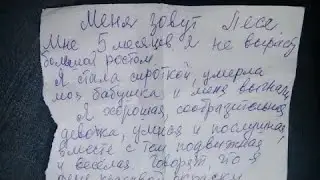 Меня зовут Леся
Мне 5 месяцев я не вырасту
большой ростом
Я стала сироткой, умерла
моя бабушка и меня выгнали
Я хорошая, сообразительная
девочка, умная и послушная
вместе с тем подвижная
и веселая. Говорят, что я
очень красивой окраски